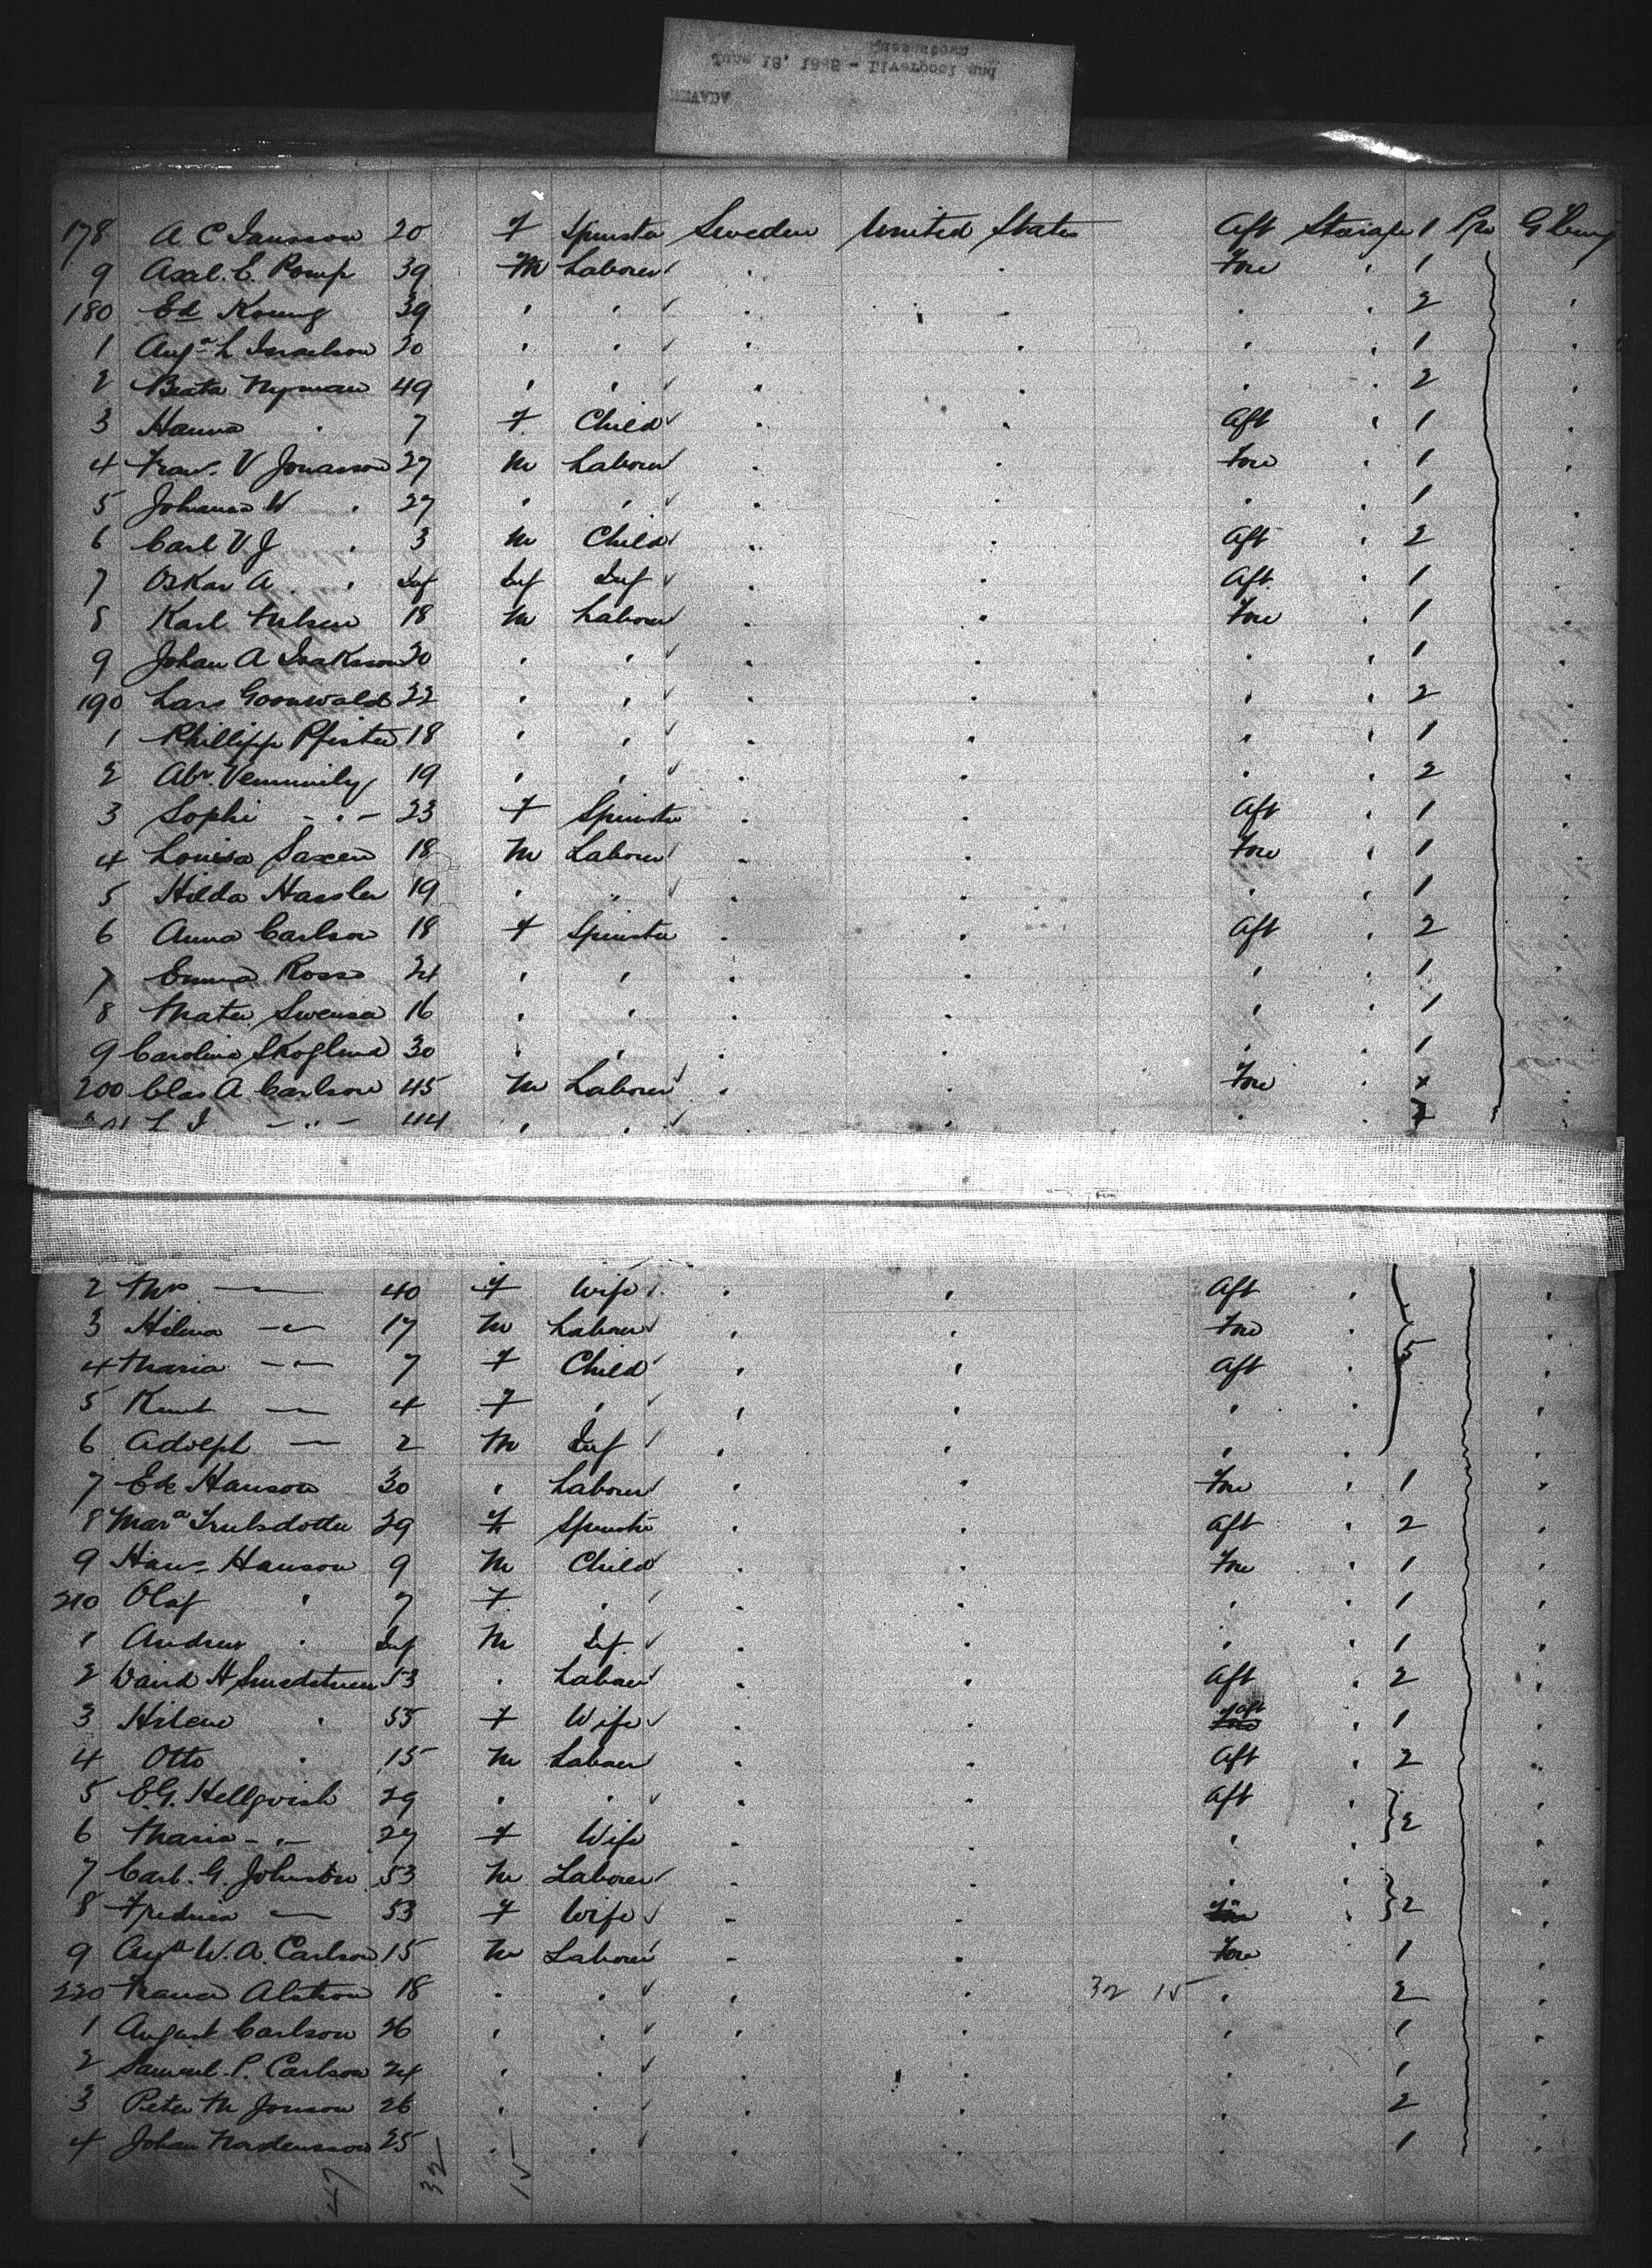 NEVADA
June 18, 1888 - Liverpool and
Queenstown
178 A C Jansson 20 F Spinster Sweden United States Aft Steerage 1 Pce G'burg
9 Axel. E. Pomp 39 M Laborer " " Fore " 1
180 Ed Koung 39 " " " " " " 2 "
1 Auga L Israelson 30 " " " " " " 1 "
2 Beata Nyman 49 " " " " " " 2 "
3 Hanna " 7 F Child " " Aft " 1 "
4 Fran. V Jonasson 27 M Laborer " " Fore " 1 "
5 Johanna W " 27 " " " " " 1 "
6 Carl V J " 3 M Child " " Aft " 2 "
7 Oskar A " Inf Inf Inf " " Aft " 1 "
8 Karl Nilsen 18 M Laborer " " Fore " 1 "
9 Johan A Isaksson 30 " " " " " " 1 "
190 Lars Goonwald 22 " " " " " " 2 "
1 Phillipp Pfister 18 " " " " " " 1 "
2 Abr. Vemmily 19 " " " " " " 2 "
3 Sophi - " - 23 F Spinster " " Aft " 1 "
4 Louisa Saxen 18 M Laborer " " Fore " 1 "
5 Hilda Hassler 19 " " " " " " 1 "
6 Anna Carlson 18 F Spinster " " Aft " 2 "
7 Emma Ross 24 " " " " " " 1 "
8 Mater Swensa 16 " " " " " " 1 "
9 Carolina Skoglund 30 " " " " " " 1 "
200 Clas A Carlson 45 M Laborer " " Fore " "
L J - " - 44 " " " " " "
2 Mrs — 40 F Wife " " Aft " "
3 Hilma — 17 M Laborer " " Fore " "
4 Maria — 7 F Child " " Aft " 5 "
5 Knut — 4 F " " " " " "
6 Adolph — 2 M Inf " " " " "
7 Ed Hanson 30 " Laborer " " Fore 1 "
8 Mara Trulsdotter 39 F Spinster " " Aft " 2 "
9 Hans Hanson 9 M Child " " Fore " 1 "
210 Olaf " 7 F " " " " " 1 "
1 Andrew " Inf M Inf " " " " 1 "
2 David H Smedstrum 53 " Laborer " " Aft " 2 "
3 Hilene " 55 F Wife " " Aft " 1 "
4 Otto " 15 M Laborer " " Aft " 2 "
5 E.G. Hellqvish 29 " " " " Aft " "
6 Maria - " - 27 F Wife " " " " 2 "
7 Carl. G. Johnston 53 M Laborer " " " " "
8 Fredrica — 53 F Wife " " " 2 "
9 Aug W. A. Carlson 15 M Laborer " " Fore 1 "
220 Alstron 18 " " " " 32 15 " 2 "
1 August Carlson 26 " " " " " 1 "
2 Samuel. P. Carlson 24 " " " " " 1 "
3 Peter M Jonson 26 " " " " " 2 "
4 Johan Nordensson 25 " " " " " 1 "
47 32 15